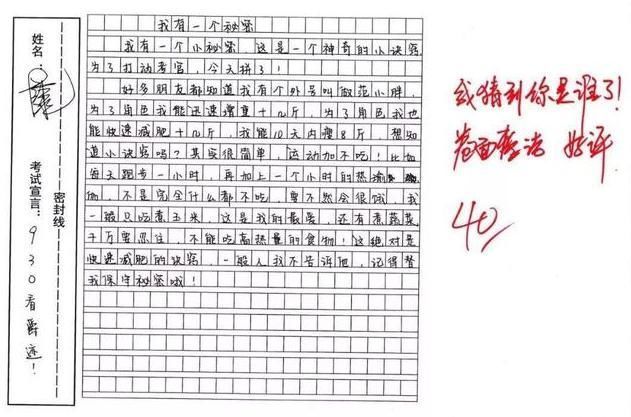 姓名：
考试宣言：930看爵迹！
密封线
我有一个秘密
我有一个小秘密，这是一个神奇的小诀窍，
为了打动考官，今天拼了！
好多朋友都知道我有个外号叫做范小胖，
为了角色我能迅速增重十几斤，为了角色我也
能快速减肥十几斤，我能10天内瘦8斤，想知
道小诀窍吗？其实很简单，运动加不吃！比如
每天跑步一小时，再加上一个小时的热瑜
伽，不是完全什么都不吃，要不然会很饿，我
一般只吃煮玉米，这是我的最爱，还有煮蔬菜
千万要忍住，不能吃高热量的食物！这绝对是
快速减肥的诀窍，一般人我不告诉他，记得替
我保守秘密哦！
我猜到你是谁了！
卷面整洁 好评
40